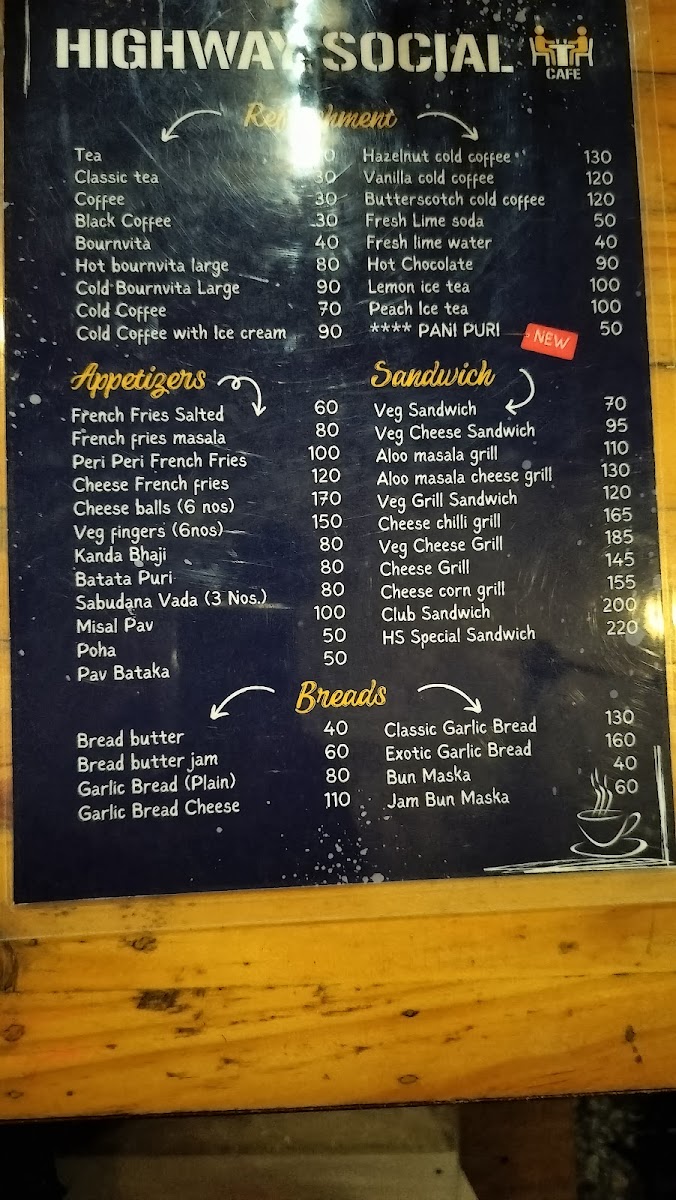 HIGHWAY SOCIAL
CAFE
Refreshment
Tea
Classic tea 30
Coffee 30
Black Coffee 30
Bournvita 40
Hot bournvita large 80
Cold Bournvita Large 90
Cold Coffee 70
Cold Coffee with Ice cream 90
Hazelnut cold coffee 130
Vanilla cold coffee 120
Butterscotch cold coffee 120
Fresh Lime soda 50
Fresh lime water 40
Hot Chocolate 90
Lemon ice tea 100
Peach Ice tea 100
**** PANI PURI NEW 50
Appetizers
French Fries Salted 60
French fries masala 80
Peri Peri French Fries 100
Cheese French fries 120
Cheese balls (6 nos) 170
Veg fingers (6nos) 150
Kanda Bhaji 80
Batata Puri 80
Sabudana Vada (3 Nos.) 80
Misal Pav 100
Poha 50
Pav Bataka 50
Sandwich
Veg Sandwich 70
Veg Cheese Sandwich 95
Aloo masala grill 110
Aloo masala cheese grill 130
Veg Grill Sandwich 120
Cheese chilli grill 165
Veg Cheese Grill 185
Cheese Grill 145
Cheese corn grill 155
Club Sandwich 200
HS Special Sandwich 220
Breads
Bread butter 40
Bread butter jam 60
Garlic Bread (Plain) 80
Garlic Bread Cheese 110
Classic Garlic Bread 130
Exotic Garlic Bread 160
Bun Maska 40
Jam Bun Maska 60